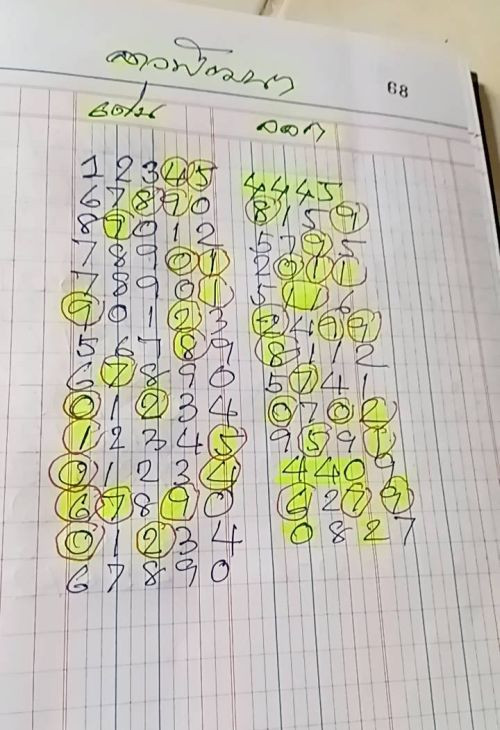 ลาวพัฒนา
68
เด่น ออก
1 2 3 4 5 4 4 4 5
6 7 8 9 0 8 1 5 9
8 9 0 1 2 5 7 9 5
7 8 9 0 1 2 0 1 1
7 8 9 0 1 5 1 1 6
9 0 1 2 3 2 4 9 9
5 6 7 8 9 8 1 1 2
6 7 8 9 0 5 7 4 1
0 1 2 3 4 0 7 0 2
1 2 3 4 5 9 5 9 1
0 1 2 3 4 4 4 0 9
6 7 8 9 0 6 2 7 9
0 1 2 3 4 0 8 2 7
6 7 8 9 0